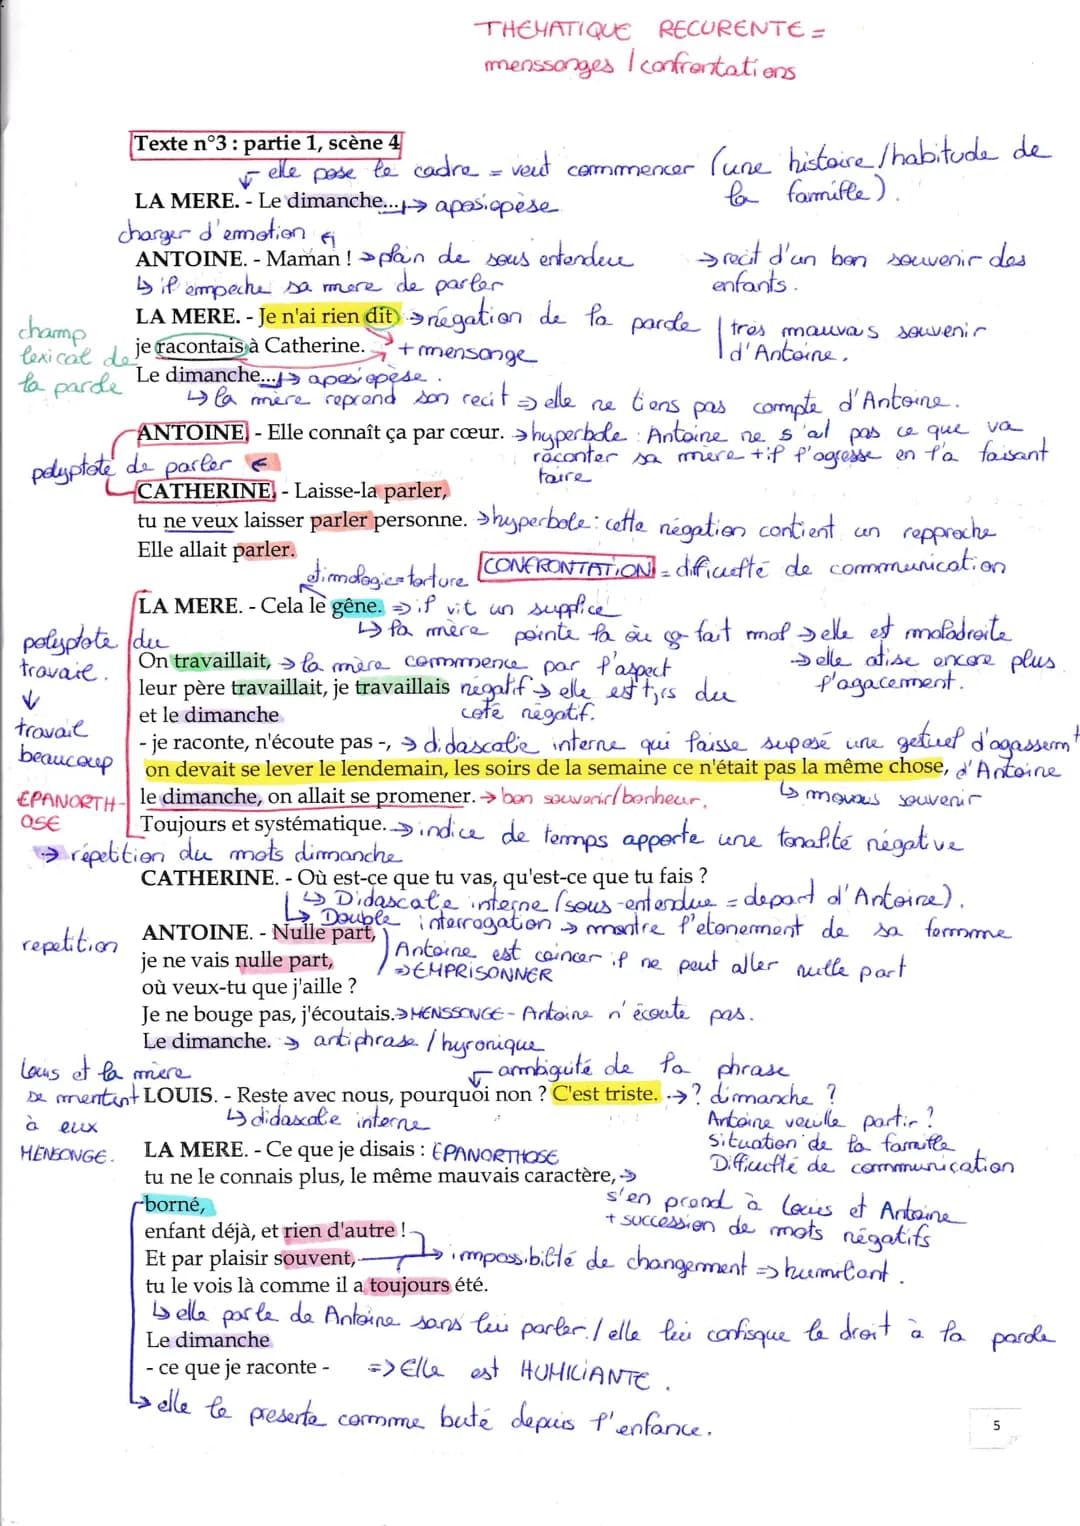 THEMATIQUE RECURENTE =
menssonges / confrontations
Texte n°3 : partie 1, scène 4
elle pose le cadre = veut commencer (une histoire/habitude de
la famille).
LA MERE. - Le dimanche... → aposiopèse
charger d'emotion
ANTOINE. - Maman ! → plein de sous entendue
→ recit d'un bon souvenir des
enfants.
↳ il empeche sa mere de parler
LA MERE. - Je n'ai rien dit → négation de la parole
très mauvais souvenir
d'Antoine.
champ
lexical de
la parole
je racontais à Catherine. + mensonge
Le dimanche... → aposiopèse.
↳ la mère reprend son recit ⇒ elle ne tiens pas compte d'Antoine.
ANTOINE. - Elle connaît ça par cœur. → hyperbole : Antoine ne s'ait pas ce que va
raconter sa mère + il l'agresse en la faisant
taire
polyptote de parler
CATHERINE. - Laisse-la parler,
tu ne veux laisser parler personne. → hyperbole : cette négation contient un repproche
Elle allait parler.
CONFRONTATION = dificulté de communication
etimologie = torture
LA MERE. - Cela le gêne. ⇒ il vit un supplice
↳ la mère pointe la où ça fait mal → elle est maladroite
→ elle atise encore plus
l'agacement.
polyptote du
travail.
↓
travail
beaucoup
On travaillait, → la mère commence par l'aspect
leur père travaillait, je travaillais négatif → elle est tjrs du
et le dimanche coté négatif.
- je raconte, n'écoute pas -, → didascalie interne qui laisse suposé une getuel d'agassemt
d'Antoine
on devait se lever le lendemain, les soirs de la semaine ce n'était pas la même chose,
↳ mauvais souvenir
EPANORTH-
OSE
le dimanche, on allait se promener. → bon souvenir/bonheur.
Toujours et systématique. → indice de temps apporte une tonalité négative
→ répetition du mots dimanche
CATHERINE. - Où est-ce que tu vas, qu'est-ce que tu fais ?
↳ Didascale interne (sous-entendue = depart d'Antoine).
↳ Double interrogation → montre l'etonement de sa femme
repetition
ANTOINE. - Nulle part,
je ne vais nulle part,
Antoine est coincer il ne peut aller nulle part
⇒ EMPRISONNER
où veux-tu que j'aille ?
Je ne bouge pas, j'écoutais. → MENSSONGE - Antoine n'écoute pas.
Le dimanche. → antiphrase / hyronique
Louis et la mère
se mentent
à eux
MENSONGE.
ambiguité de la phrase
LOUIS. - Reste avec nous, pourquoi non ? C'est triste. → ? dimanche ?
Antoine veuille partir ?
Situation de la famille
Difficulté de communication
↳ didascale interne
LA MERE. - Ce que je disais : EPANORTHOSE
tu ne le connais plus, le même mauvais caractère, →
s'en prend à Louis et Antoine
+ succession de mots négatifs
borné,
enfant déjà, et rien d'autre !
Et par plaisir souvent, → impossibilté de changement ⇒ humiliant.
tu le vois là comme il a toujours été.
↳ elle parle de Antoine sans lui parler / elle lui confisque le droit à la parole
Le dimanche
- ce que je raconte - ⇒ Elle est HUMILIANTE.
↳ elle le presente comme buté depuis l'enfance.
5